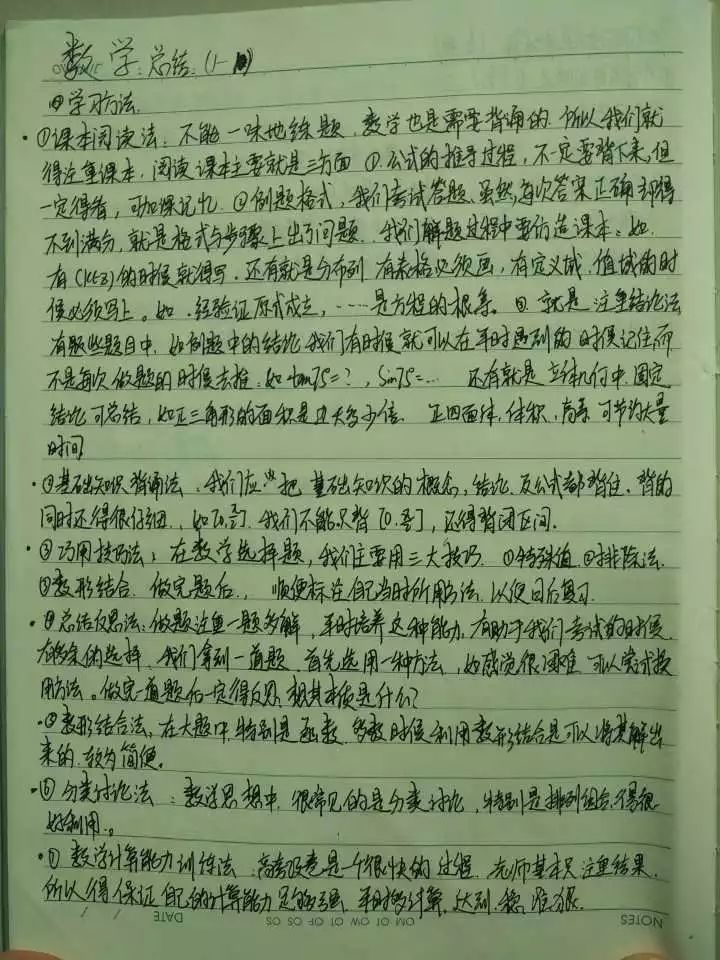 数学:总结(1-)
学习方法
①课本阅读法:不能一味地练题,数学也是需要背诵的.所以我们就
得注重课本,阅读课本主要就是三方面①.公式的推导过程,不一定要背下来,但
一定得看,可加深记忆.②例题格式,我们考试答题,虽然每次答案正确却得
不到满分,就是格式与步骤上出了问题.我们解题过程中要仿造课本:如.
有(k∈Z)的时候就得写.还有就是分布列有表格必须画,有定义域,值域的时
候必须写上。如.经验证原式成立,……是方程的根等。③.就是注重结论法
有题些题目中,如例题中的结论,我们有时候就可以在平时遇到的时候记住,而
不是每次做题的时候去推:如tan75=?,Sin75=…还有就是立体几何中.固定
结论可总结,如正三角形的面积是边长多少倍.正四面体,体积,高等可节约大量
时间
②基础知识背诵法:我们应把基础知识的概念,结论及公式都背住,背的
同时还得很仔细.,我们不能只背,还得背闭区间.
③巧用技巧法:在数学选择题,我们主要用三大技巧.①特殊值.②排除法.
③数形结合.做完题后,顺便标注自己当时所用方法.以便日后复习.
④总结反思法:做题注重一题多解,平时培养这种能力,有助于我们考试的时候.
有多余的选择.我们拿到一道题.首先选用一种方法,如感觉很困难可以尝试换
用方法。做完一道题后一定得反思想其本质是什么?
⑤数形结合法,在大题中,特别是函数.多数时候利用数形结合是可以将其解出
来的.较为简便。
⑥分类讨论法:数学思想中.很常见的是分类讨论,特别是排列组合,得很
好利用。
⑦数学计算能力训练法:高考改卷是一个很快的过程.老师基本只注重结果.
所以得保证自己的计算能力足够强.平时多计算.达到.稳.准.狠.
DATE / /
NOTES